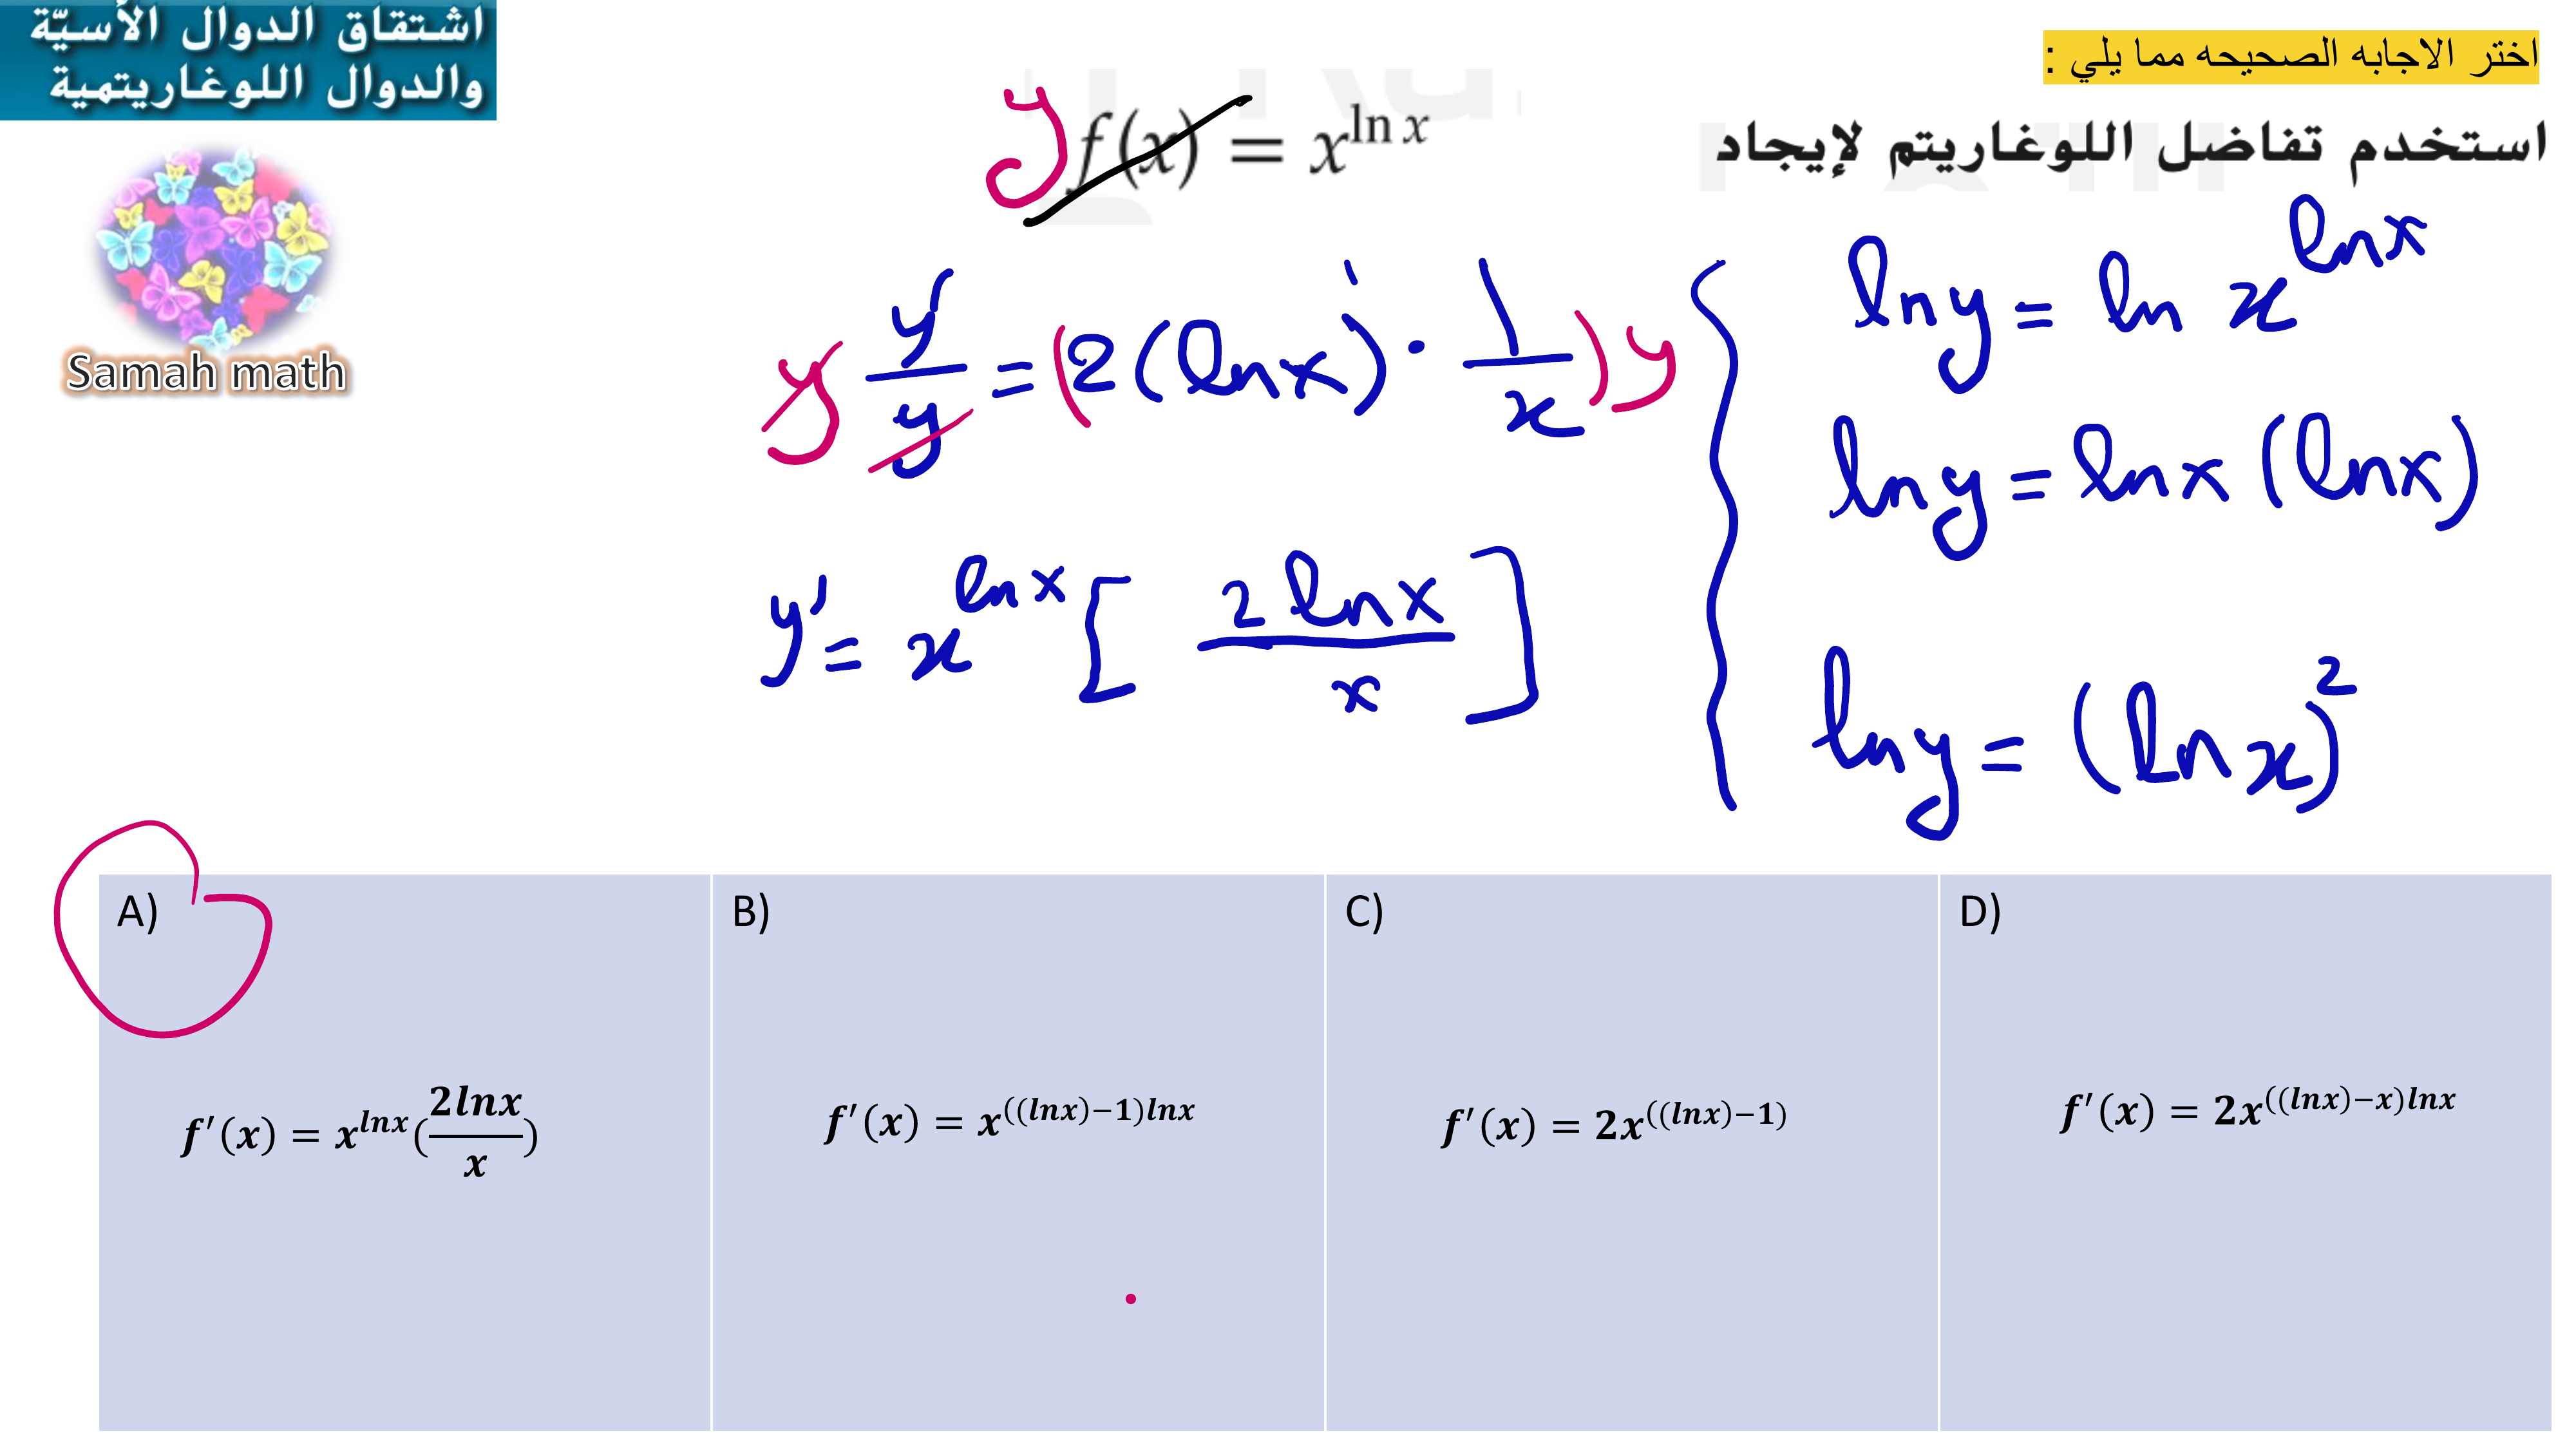 اشتقاق الدوال الأسيّة
والدوال اللوغاريتمية
Samah math
اختر الاجابه الصحيحه مما يلي :
استخدم تفاضل اللوغاريتم لإيجاد
y f(x) = x^{ln x}
ln y = ln x^{ln x}
ln y = ln x (ln x)
ln y = (ln x)^2
y y'/y = (2 (ln x)^1 · 1/x) y
y' = x^{ln x} [2 ln x / x]
A)
f'(x) = x^{lnx}(2lnx/x)
B)
f'(x) = x^{((lnx)−1)lnx}
C)
f'(x) = 2x^{((lnx)−1)}
D)
f'(x) = 2x^{((lnx)−x)lnx}